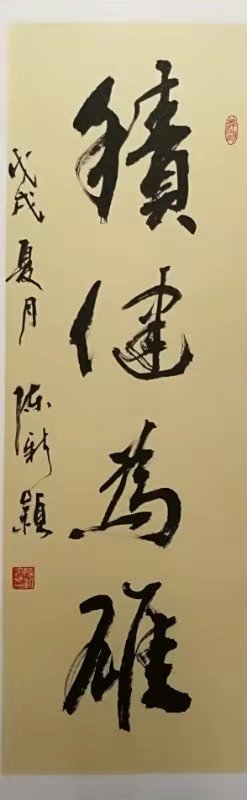 積健為雄
戊戌夏月 陈新颖